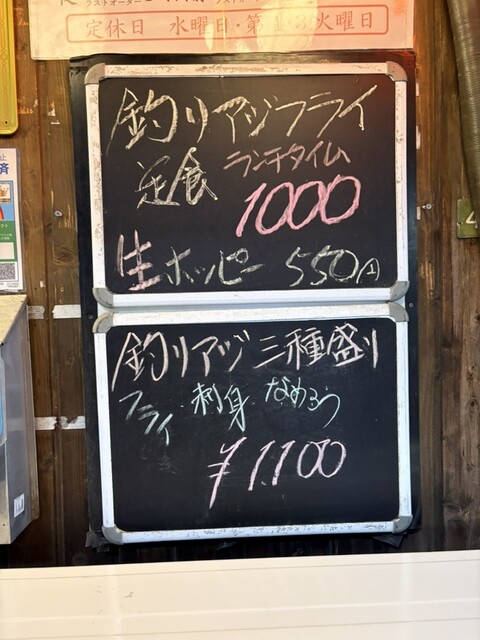 定休日 水曜日・第1・3火曜日
釣りアジフライ
定食 ランチタイム
1000
生ホッピー 550円
釣りアジ 三種盛り
フライ・刺身・なめろう
¥1.100